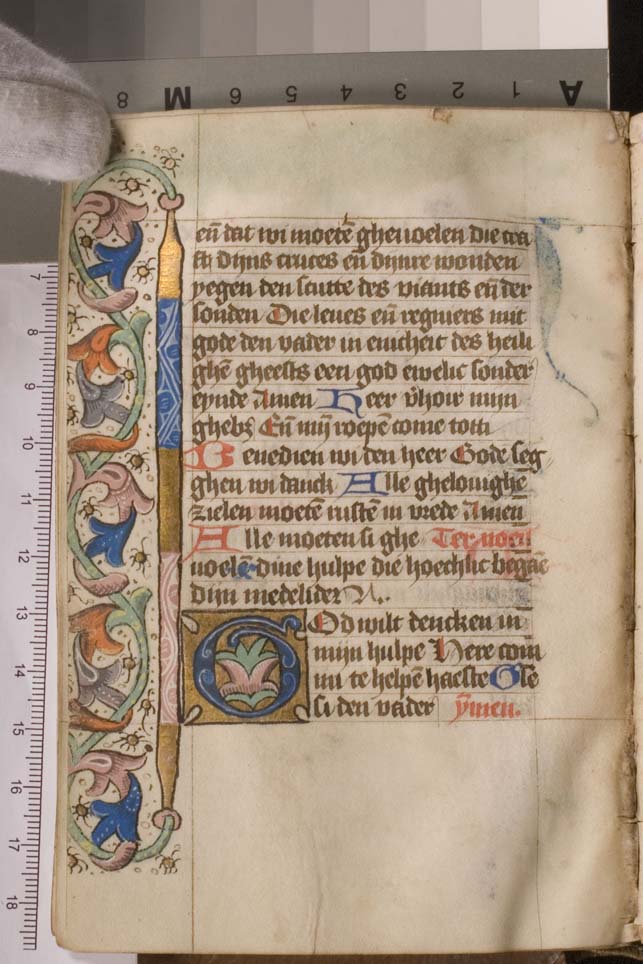 8 M 6 5 4 3 2 1 A
7
8
9
10
11
12
13
14
15
16
17
18
eñ dat wi moetē ghevoelen die cra
ft dijns cruces eñ dijnre wonden
yegen den scutte des viants eñ der
sonden Die leues eñ regniers mit
gode den vader in enicheit des heili
ghē gheests een god ewelic sonder
eynde Amen Heer vhoir mijn
ghebꝫ Eñ mij roepē come toti
Benedien wi den heer Gode seg
ghen wi danck Alle ghelouighē
zielen moetē rustē in vrede Amen
Alle moeten si ghe Ter noen
uoelē dine hulpe die hoechlic begāē
dijn medelider A.
God wilt dencken in
mijn hulpe Here com
mi te helpē haeste Glē
si den vader ymen.